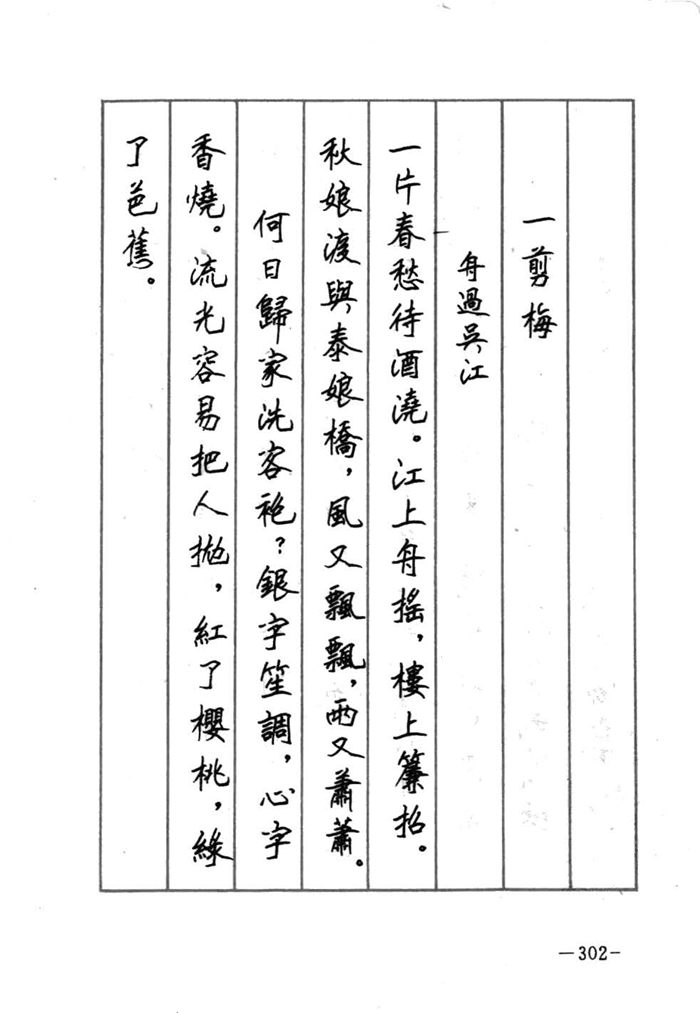 一剪梅
舟過吳江
一片春愁待酒澆。江上舟搖，樓上簾招。
秋娘渡與泰娘橋，風又飄飄，雨又蕭蕭。
何日歸家洗客袍？銀字笙調，心字
香燒。流光容易把人拋，紅了櫻桃，綠
了芭蕉。
—302-